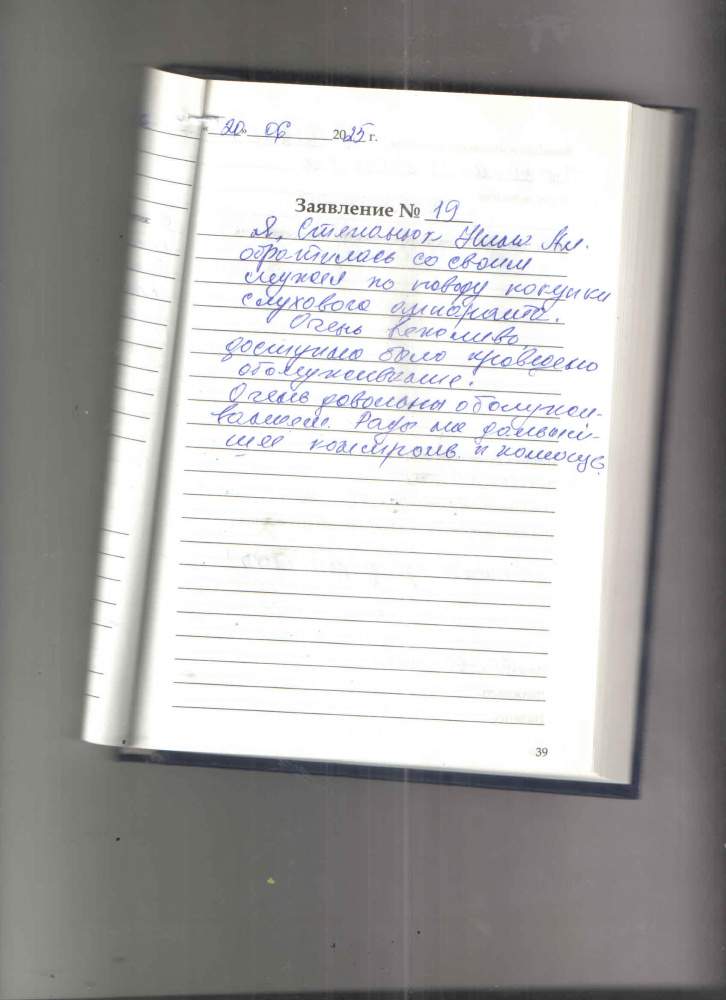 "20" 06 2025 г.
Заявление № 19
Я, Степанцюк Ал.
обратилась со своим
по поводу покупки
слухового аппарата.
Очень вежливо,
доступно было проведено
обслуживание.
Очень довольны обслужи-
ванием. Рады на дальней-
шее и помощь
39